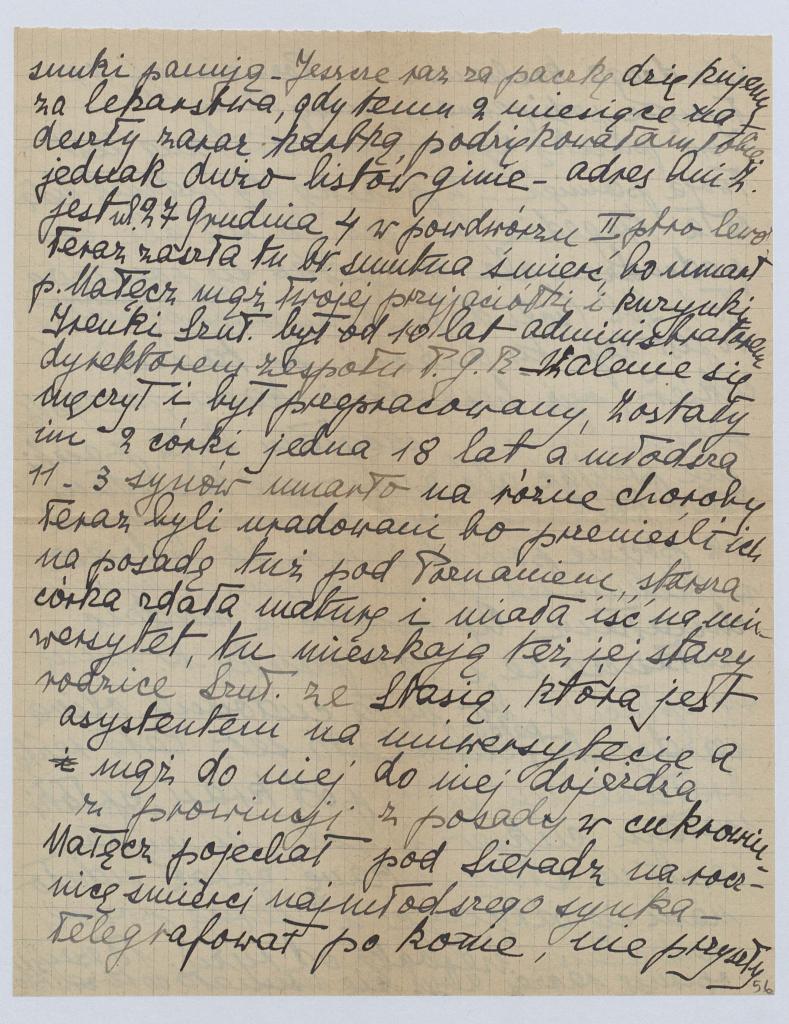 sunki panują - Jeszcze raz za paczkę dziękujemy
za lekarstwa, gdy temu 2 miesiące na
deszły zaraz kartką podziękowałam Tobie
jednak dużo listów ginie - adres Ani Z.
jest ul. 27 Grudnia 4 w powdwórzu II ptro lewo.
Teraz zaszła tu br. smutna śmierć bo umarł
p. Małęcz mąż Twojej przyjaciółki i kuzynki
Irenki Szuł. był od 10 lat administratorem
dyrektorem zespołu P.G.R. Szalenie się
męczył i był przepracowany, Zostały
im 2 córki jedna 18 lat a młodsza
11 - 3 synów umarło na różne choroby
teraz byli uradowani bo przenieśli ich
na posadę tuż pod Poznaniem, starsza
córka zdała maturę i miała iść na uni-
wersytet, tu mieszkają też jej starzy
rodzice Szuł. ze Stasią, która jest
asystentem na uniwersytecie a
mąż do niej do niej dojeżdża
z prowincji z posady w cukrowni
Małęcz pojechał pod Sieradz na rocz-
nicę śmierci najmłodszego synka -
telegrafował po konie, nie przyszły
56